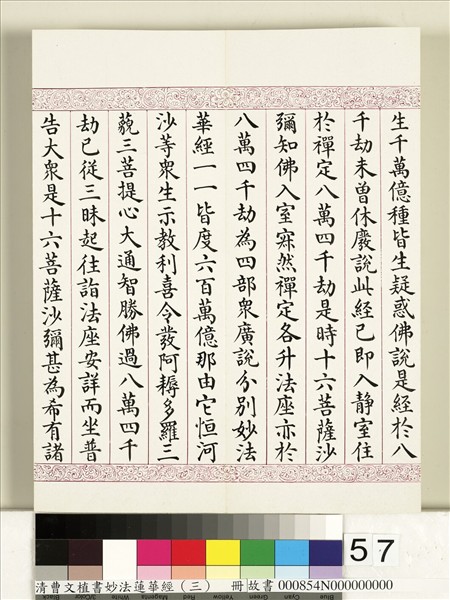 生千萬億種皆生疑惑佛說是經於八
千劫未曾休廢說此經已即入靜室住
於禪定八萬四千劫是時十六菩薩沙
彌知佛入室寂然禪定各升法座亦於
八萬四千劫為四部眾廣說分別妙法
華經一一皆度六百萬億那由它恒河
沙等眾生示教利喜令發阿耨多羅三
藐三菩提心大通智勝佛過八萬四千
劫已從三昧起往詣法座安詳而坐普
告大眾是十六菩薩沙彌甚為希有諸
57
清曹文植書妙法蓮華經(三) 冊 故書 000854N000000000